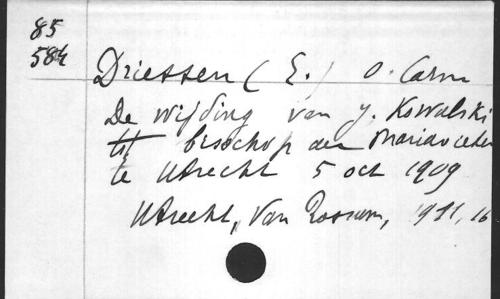 85
584
Driessen (E.) O. Carm
De wijding van J. Kowalski
tot bisschop der Mariavieten
te Utrecht 5 oct 1909
Utrecht, Van Rossum, 1911, 16